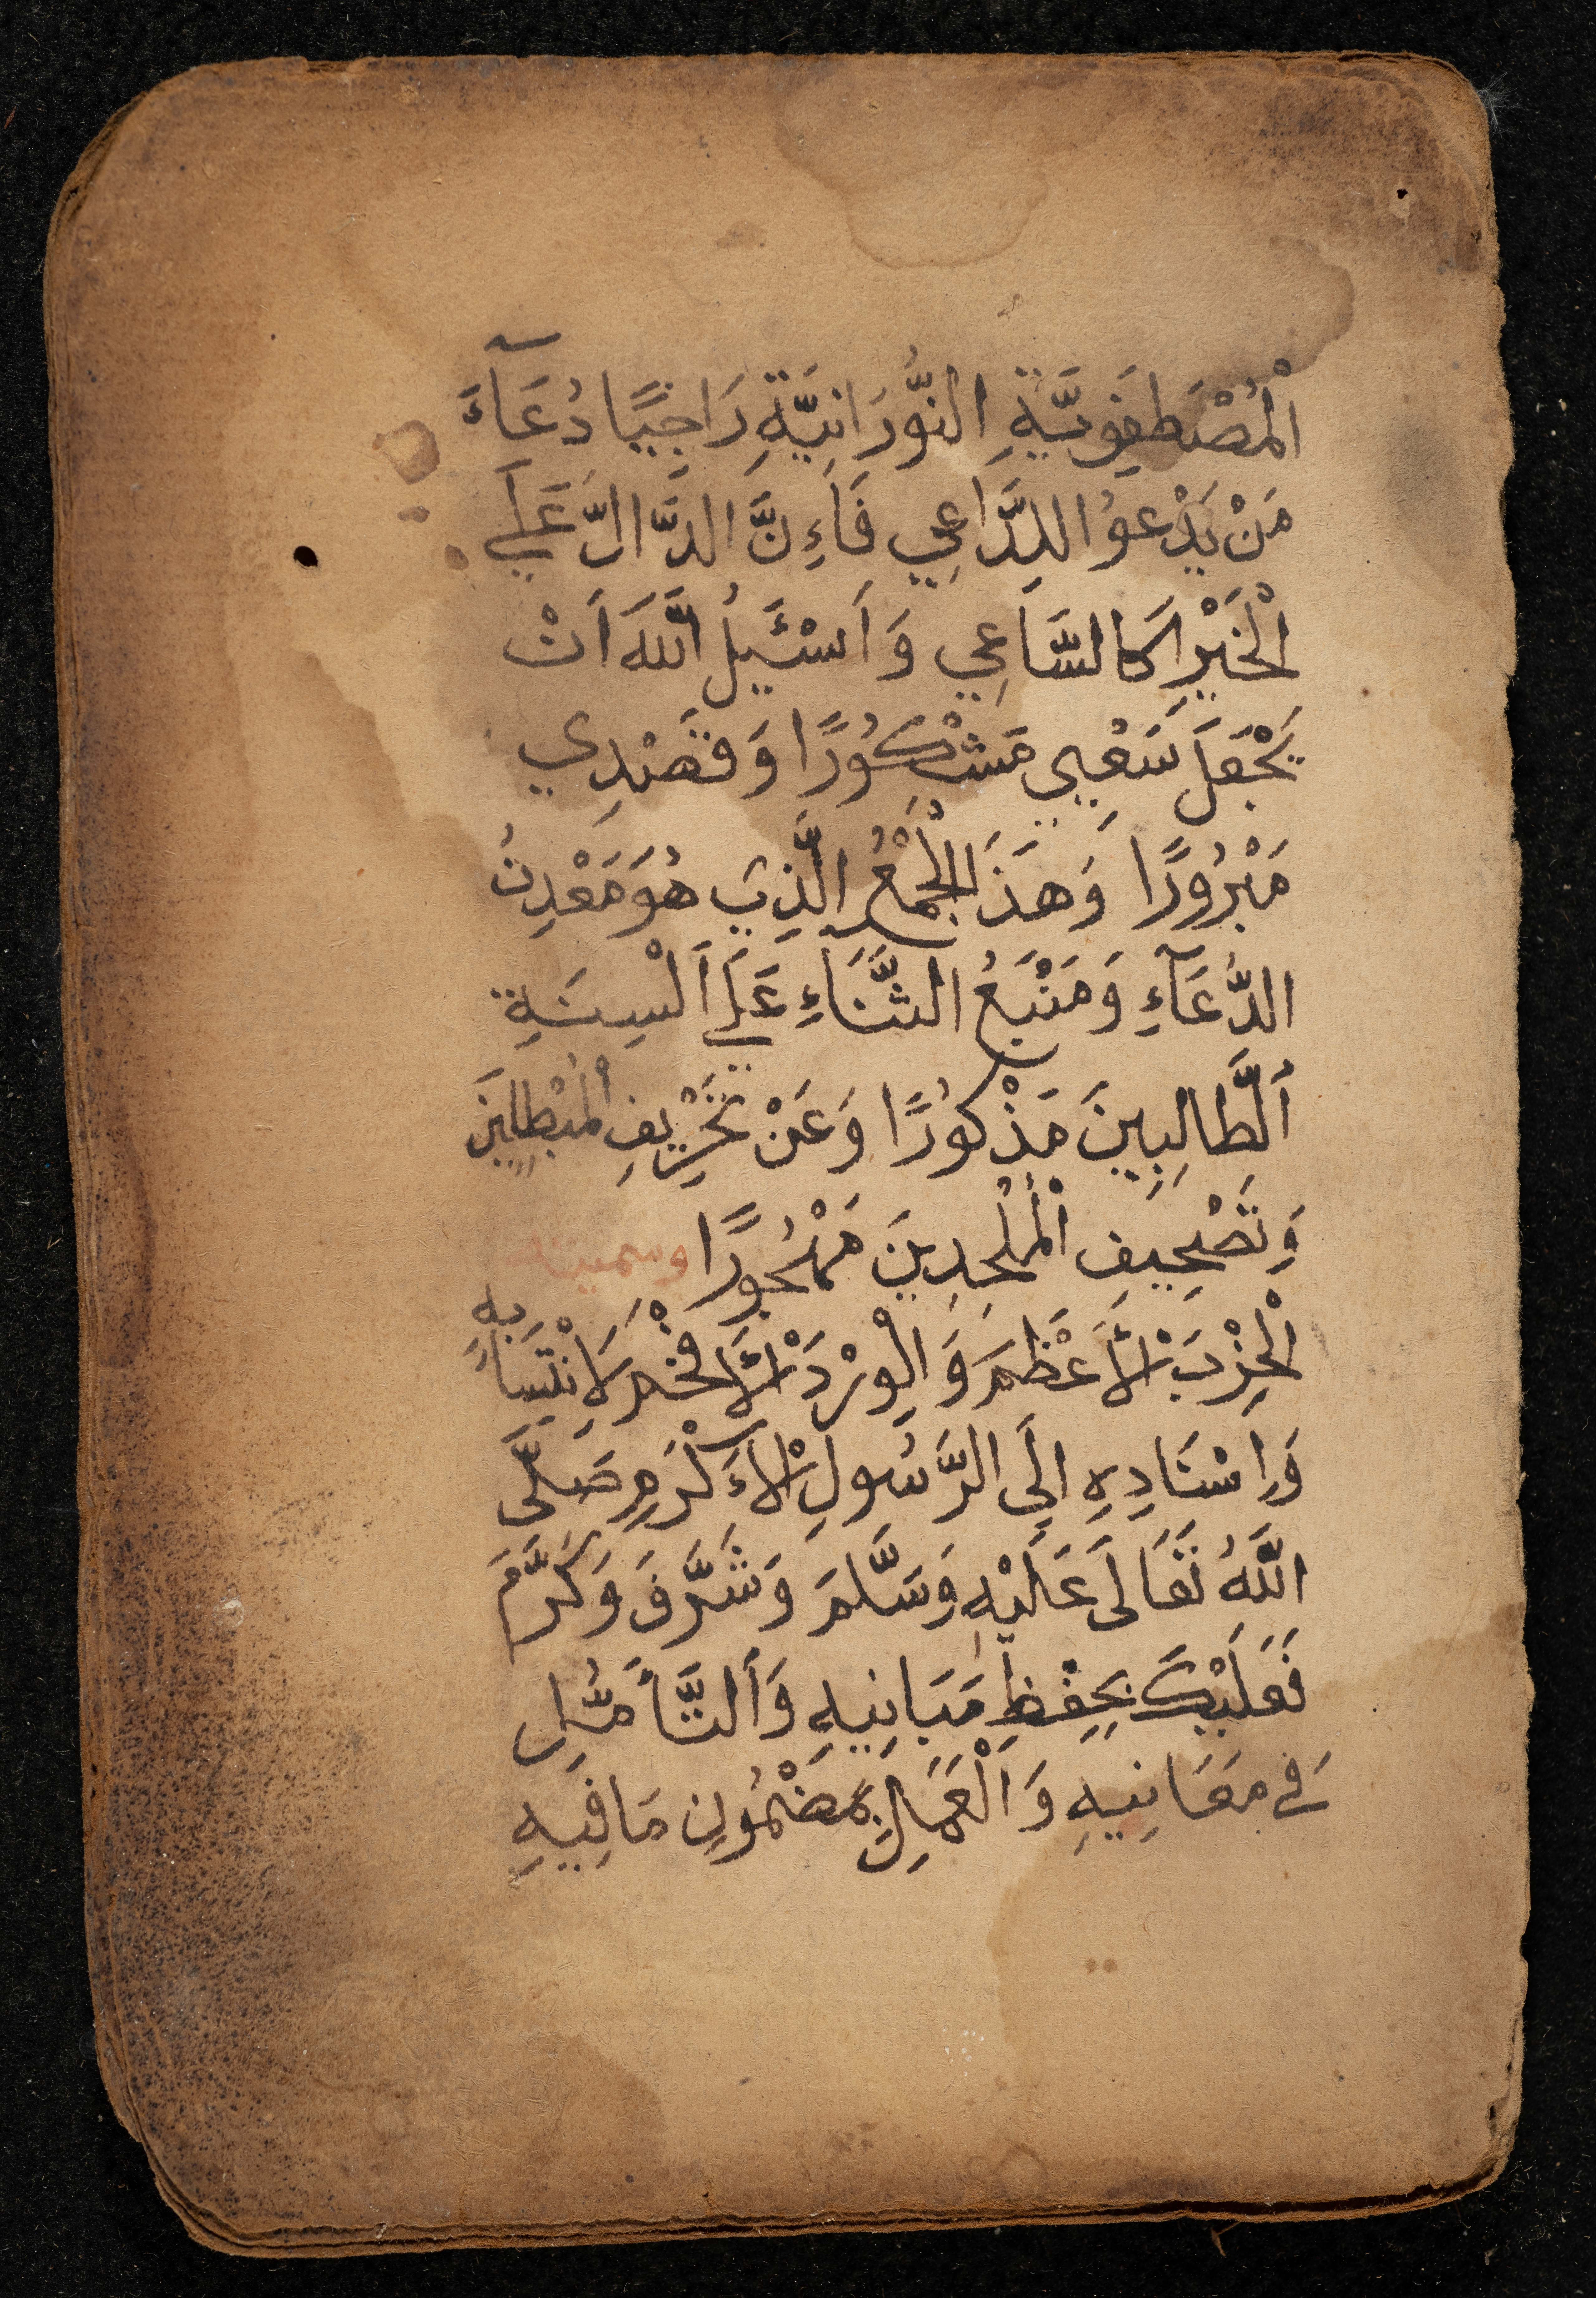 الْمُصْطَفَوِيَّةِ النُّورَانِيَّةِ رَاجِيًا دُعَآءَ
مَنْ يَدْعُو الدَّاعِي فَاِنَّ الدَّالَّ عَلَي
الْخَيْرِ كَالسَّاعِي وَاَسْئَلُ اللّٰهَ اَنْ
يَجْعَلَ سَعْيِي مَشْكُورًا وَقَصْدِي
مَبْرُورًا وَهَذَ الْجَمْعُ الَّذِي هُوَ مَعْدِنُ
الدُّعَآءِ وَمَنْبَعُ الثَّنَآءِ عَلَي اَلْسِنَةِ
اَلطَّالِبِينَ مَذْكُورًا وَعَنْ تَحْرِيفِ الْمُبْطِلِينَ
وَتَصْحِيفِ الْمُلْحِدِينَ مَمْحُورًا وسميته
الْحِزْبَ الْاَعْظَمَ وَالْوِرْدَ الْاَفْخَمَ لِانْتِسَابِهِ
وَاِسْنَادِهِ اِلَى الرَّسُولِ الْاَكْرَمِ صَلَّى
اللّٰهُ تَعَالَى عَلَيْهِ وَسَلَّمَ وَشَرَّفَ وَكَرَّمَ
فَعَلَيْكَ بِحِفْظِ مَبَانِيهِ وَالتَّأَمُّلِ
فِي مَعَانِيهِ وَالْعَمَلِ بِمَضْمُونِ مَا فِيهِ